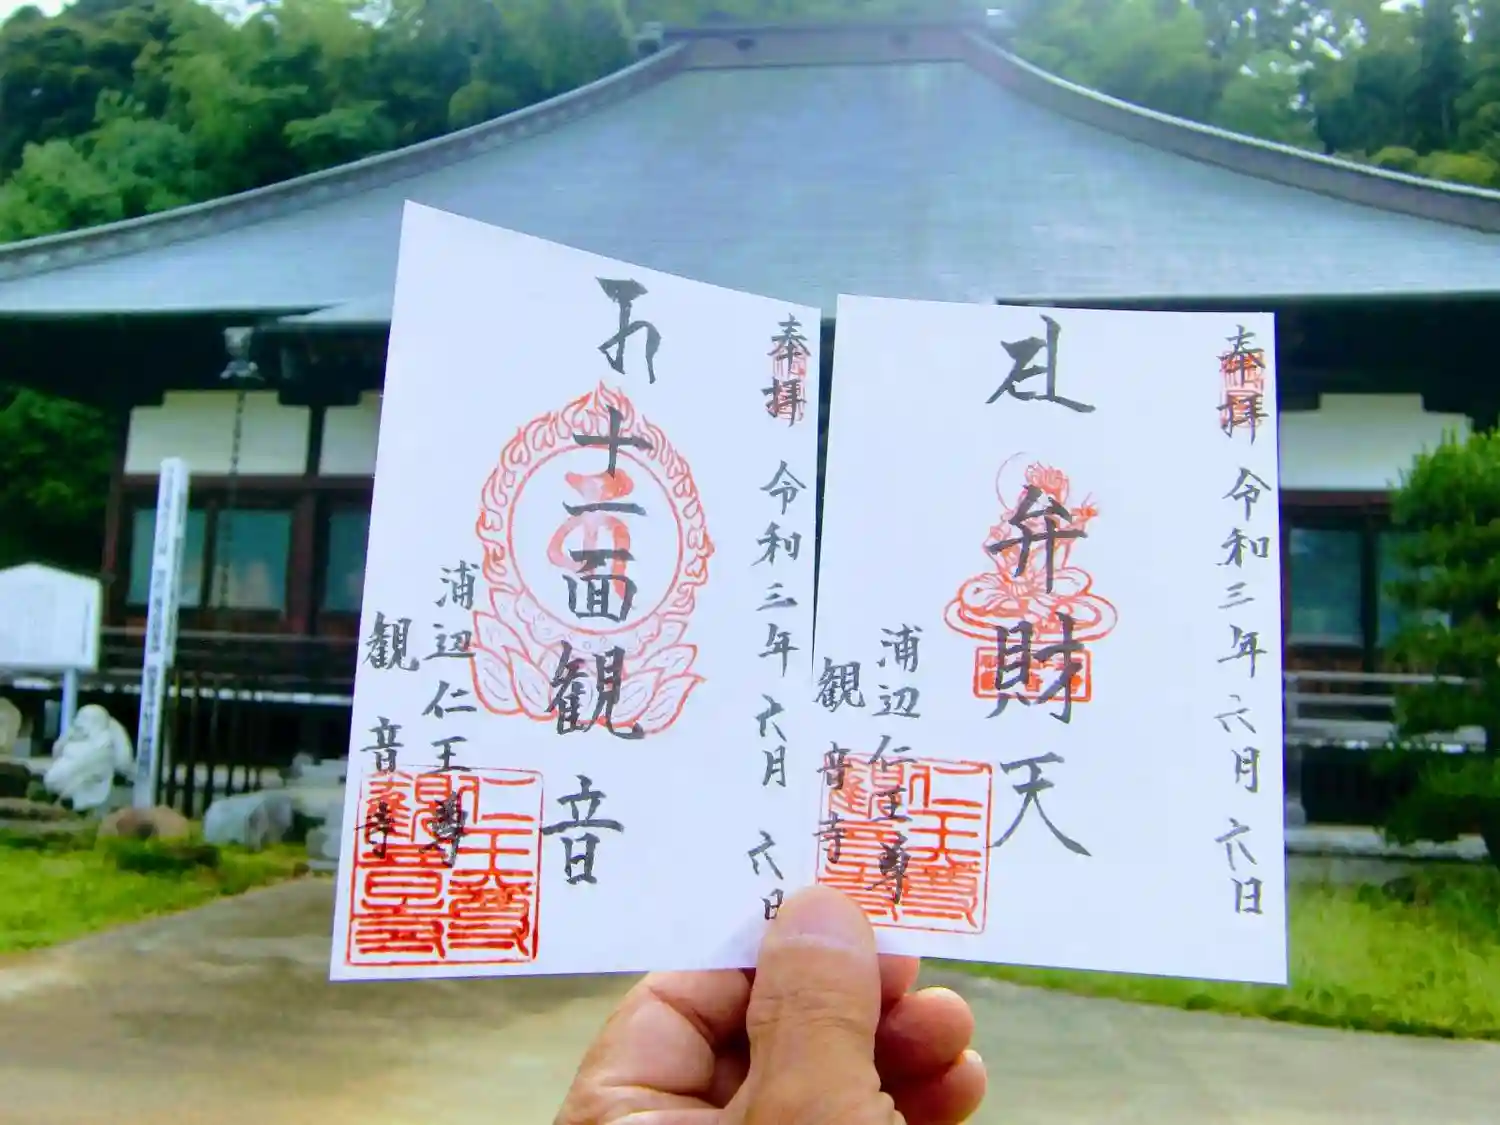 奉拝 令和三年 六月 六日
十一面観音
浦辺仁王尊
観音寺
仁王尊
観音寺
奉拝 令和三年 六月 六日
弁財天
浦辺仁王尊
観音寺
仁王尊